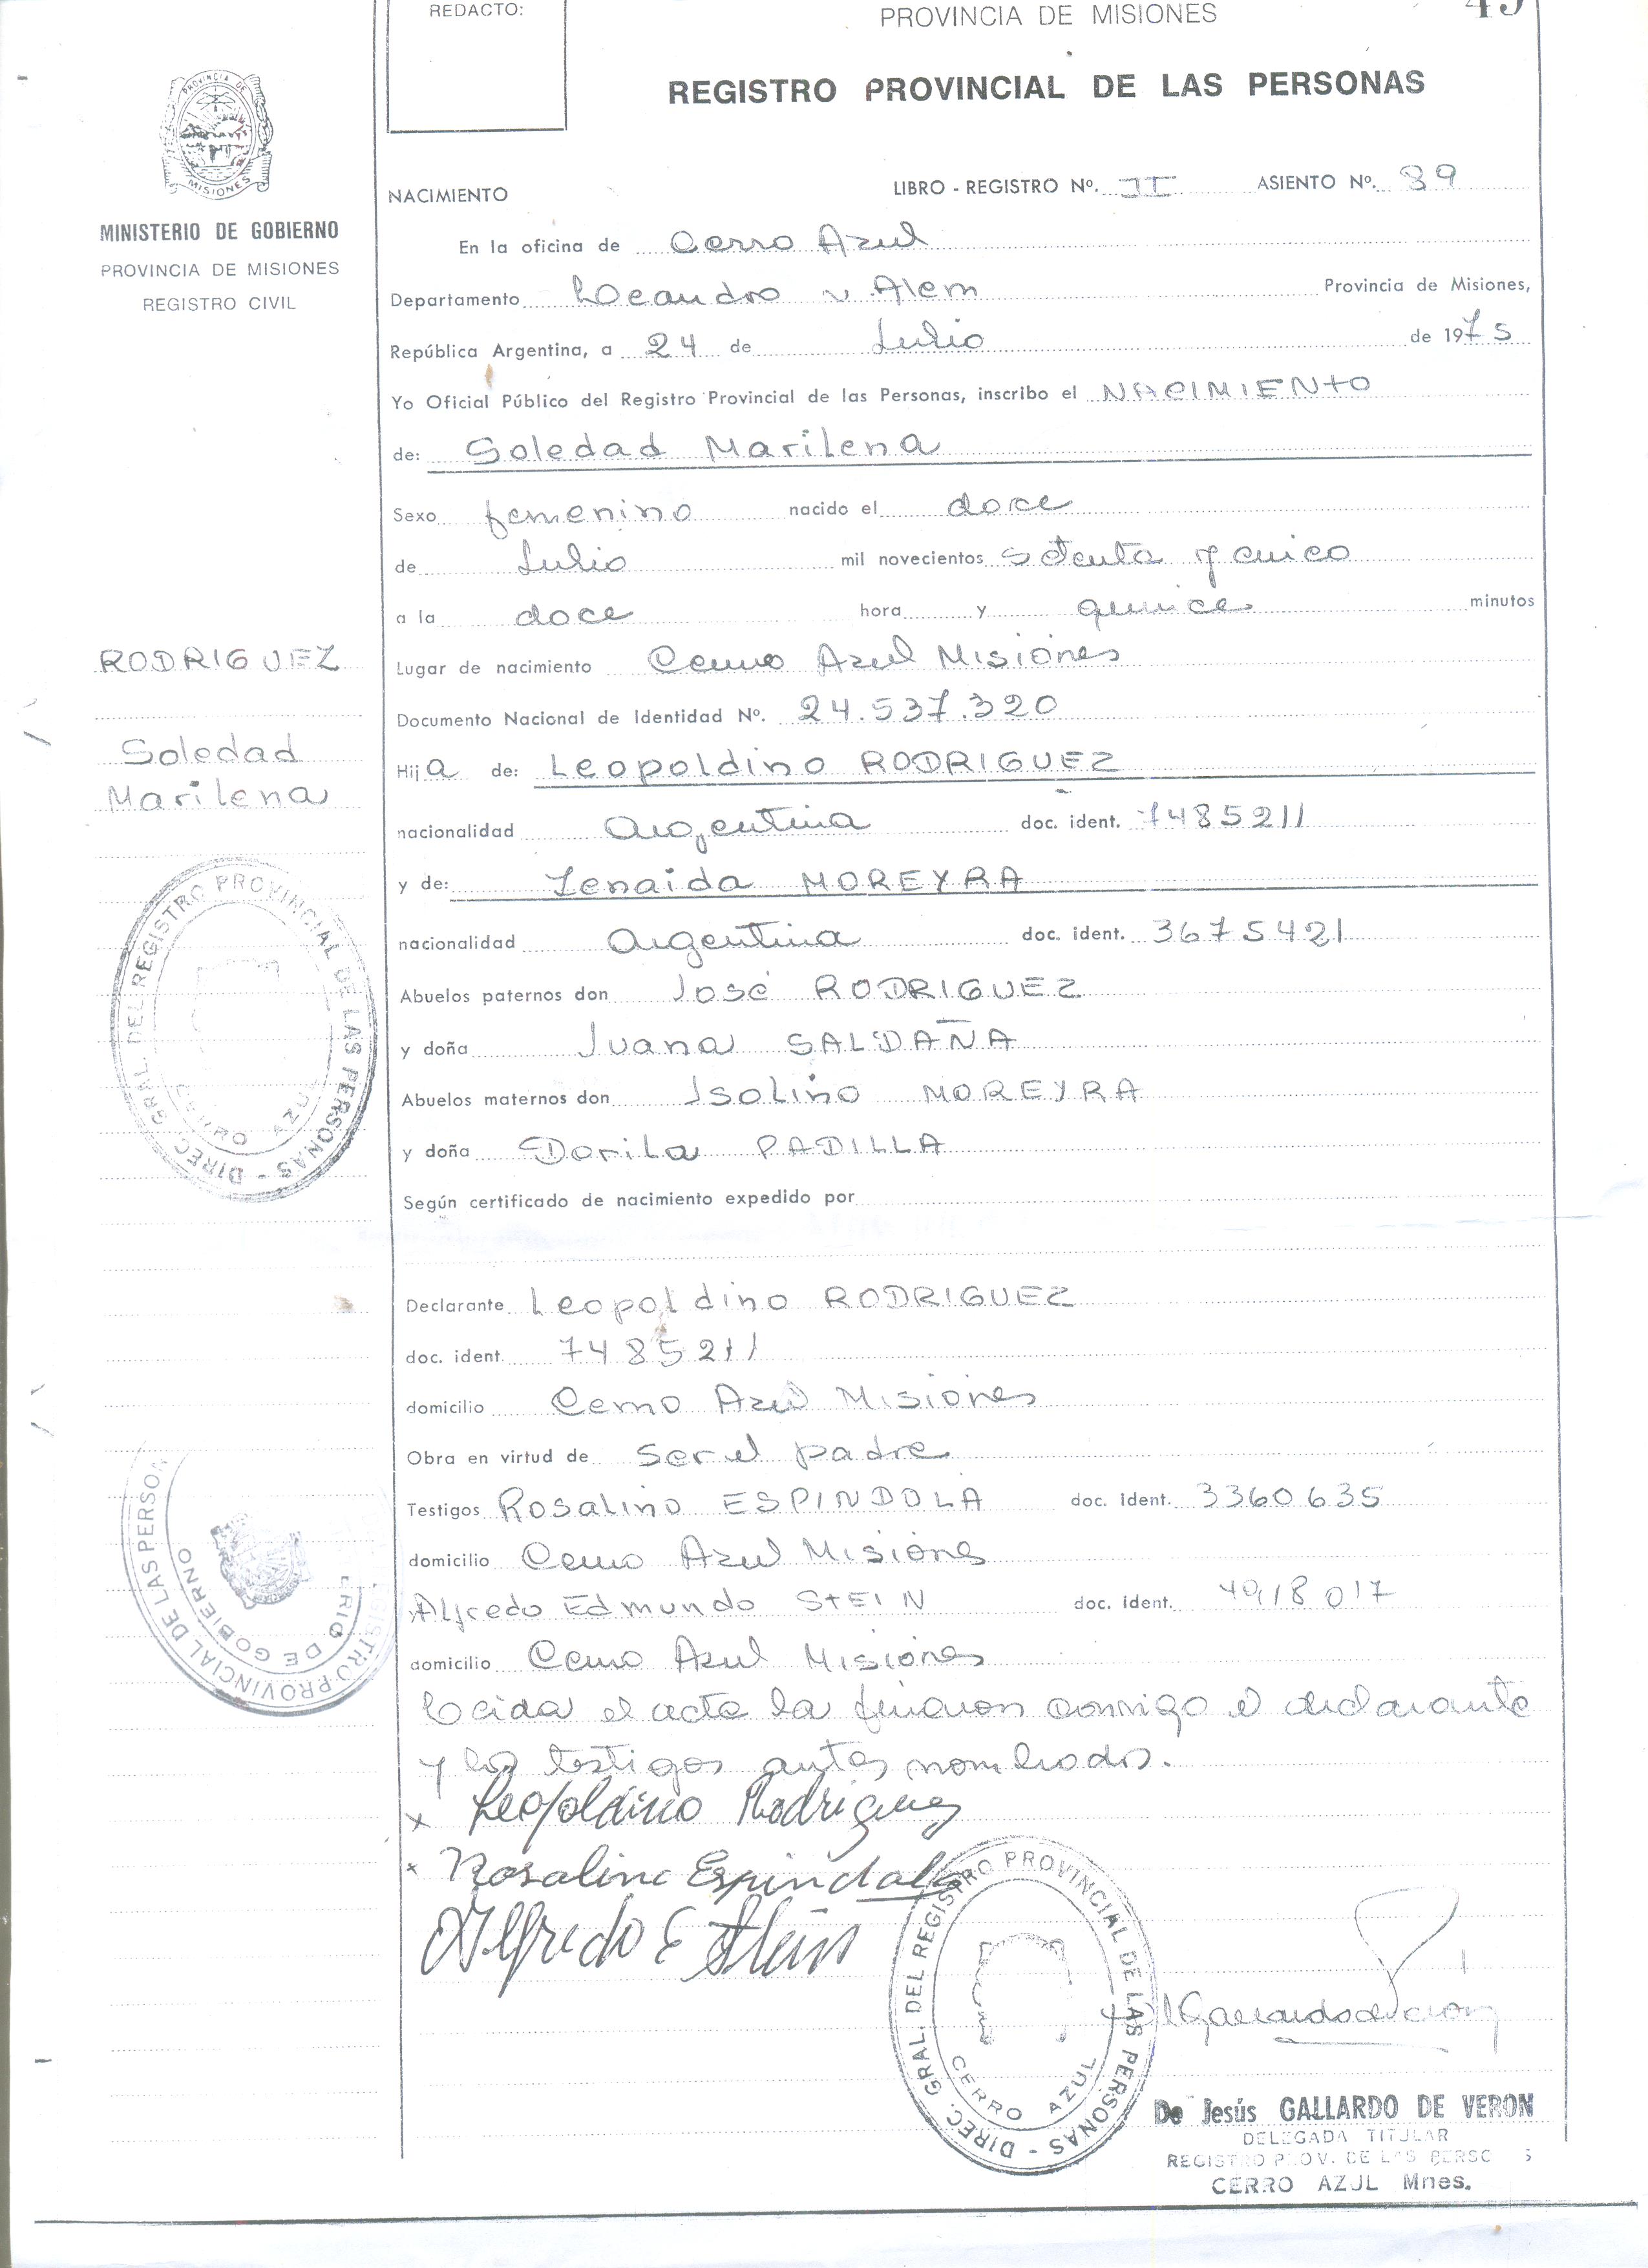 REDACTO:
PROVINCIA DE MISIONES
REGISTRO PROVINCIAL DE LAS PERSONAS
PROVINCIA DE
MISIONES
MINISTERIO DE GOBIERNO
PROVINCIA DE MISIONES
REGISTRO CIVIL
NACIMIENTO
LIBRO - REGISTRO Nº. II ASIENTO Nº. 89
En la oficina de Cerro Azul
Departamento Leandro N. Alem Provincia de Misiones,
República Argentina, a 24 de Julio de 1975
Yo Oficial Público del Registro Provincial de las Personas, inscribo el NACIMIENTO
de: Soledad Marilena
Sexo femenino nacido el doce
de Julio mil novecientos setenta y cinco
a la doce hora y quince minutos
RODRIGUEZ
Soledad
Marilena
Lugar de nacimiento Cerro Azul Misiones
Documento Nacional de Identidad Nº. 24.537.320
Hija de: Leopoldino RODRIGUEZ
nacionalidad Argentina doc. ident. 7485211
y de: Zenaida MOREYRA
nacionalidad Argentina doc. ident. 3675421
Abuelos paternos don José RODRIGUEZ
y doña Juana SALDAÑA
Abuelos maternos don Isolino MOREYRA
y doña Dorila PADILLA
Según certificado de nacimiento expedido por
Declarante Leopoldino RODRIGUEZ
doc. ident. 7485211
domicilio Cerro Azul Misiones
Obra en virtud de ser el padre
Testigos Rosalino ESPINDOLA doc. ident. 3360635
domicilio Cerro Azul Misiones
Alfredo Edmundo STEIN doc. ident.
domicilio Cerro Azul Misiones
Leida el acta la firmaron conmigo el declarante
y los testigos antes nombrados.
x Leopoldino Rodriguez
x Rosalino Espindola
Alfredo E Stein
DIREC. GRAL. DEL REGISTRO PROVINCIAL DE LAS PERSONAS -
CERRO AZUL
REGISTRO PROVINCIAL DE LAS PERSON
MINISTERIO DE GOBIERNO
DIREC. GRAL. DEL REGISTRO PROVINCIAL DE LAS PERSONAS -
CERRO AZUL
De Jesús GALLARDO DE VERON
DELEGADA TITULAR
REGISTRO PROV. DE LAS PERSO S
CERRO AZUL Mnes.